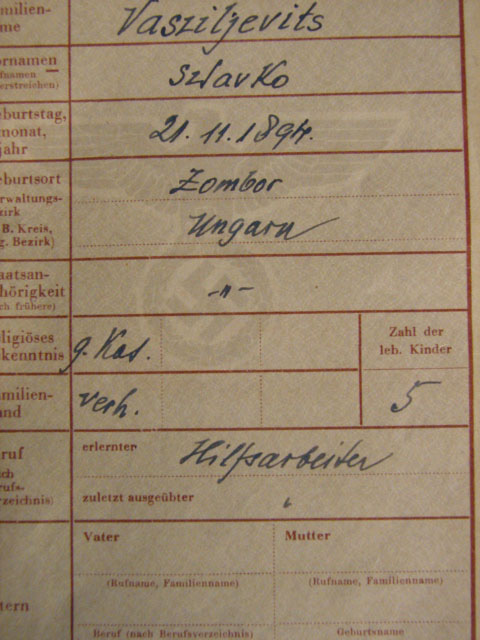 amilien-
me
Vasziljevits
ornamen
ufnamen
erstreichen)
Szlavko
eburtstag,
monat,
jahr
21. 11. 1894.
eburtsort
erwaltungs-
zirk
B. Kreis,
g. Bezirk)
Zombor
Ungarn
aatsan-
hörigkeit
ch. frühere)
-"-
ligiöses
ekenntnis
g. Kat.
Zahl der
leb. Kinder
amilien-
and
verh.
5
ruf
ch
rufs-
rzeichnis)
erlernter
Hilfsarbeiter
zuletzt ausgeübter
tern
Vater
Mutter
(Rufname, Familienname)
(Rufname, Familienname)
Beruf (nach Berufsverzeichnis)
Geburtsname